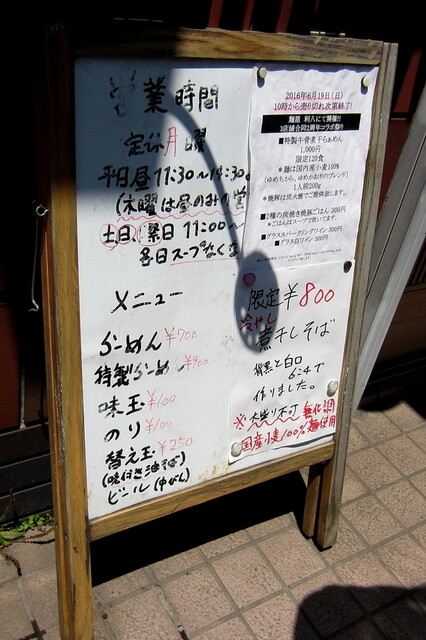 営業時間
定休月曜
平日昼11:30〜14:30
(木曜は昼のみの営
土日、祭日 11:00〜
各日スープなくな
メニュー
らーめん ¥700
特製らーめん ¥900
味玉 ¥100
のり ¥100
替え玉 ¥250
(味付き油そば)
ビール (中びん)
2016年6月19日(日)
10時から売り切れ次第終了!
麺屋 利八にて開催!!
3店舗合同2周年コラボ祭り
■特製牛骨煮干らぁめん
1,000円
限定120食
*麺は国内産小麦100%
(ゆめちから、ゆめかおりのブレンド)
1人前200g
*焼豚は炭火焼でご提供します。
■2種の炭焼き焼豚ごはん 300円
*ごはんはスープで炊いてます。
■グラススパークリングワイン 300円
■グラス白ワイン 300円
限定¥800
冷やし
煮干しそば
背黒と白口
6:4で
作りました。
※大盛り不可 無化調
国産小麦100%麺使用